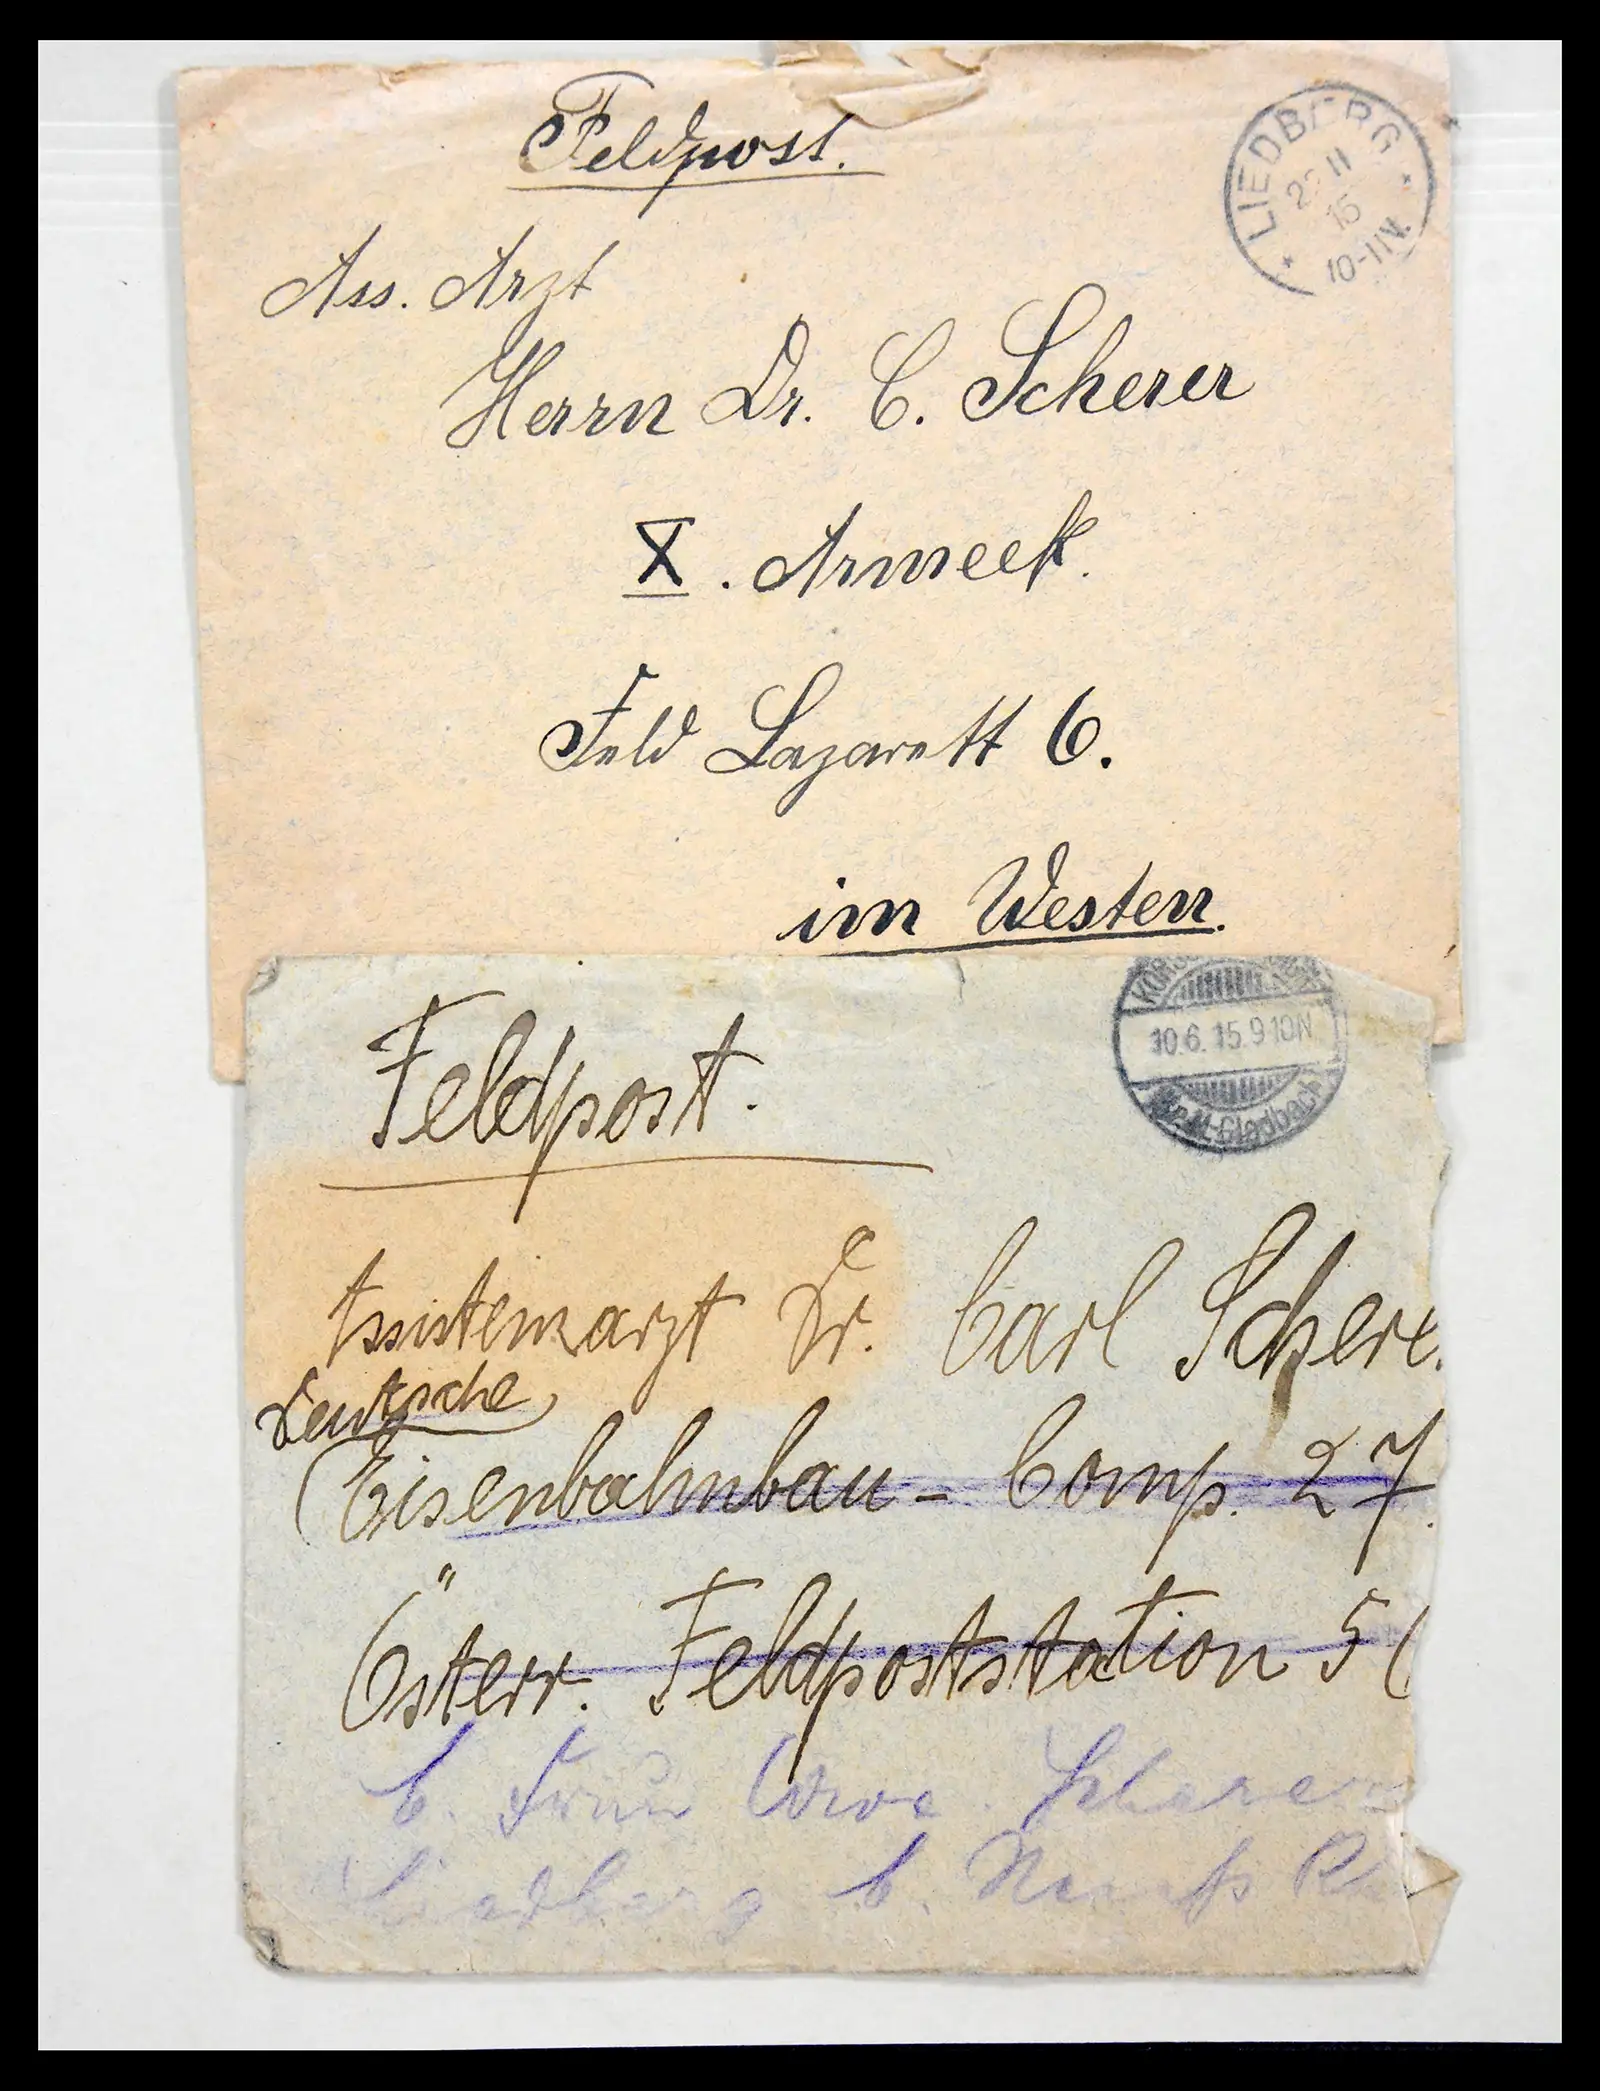 Feldpost.
LIEDBERG
11
15
10-11N.
Ass. Arzt
Herrn Dr. C. Scherer
X. Armeek.
Feld Lazarett 6.
im Westen.
10.6.15.9 10N
M-Gladbach
Feldpost.
Assistenzarzt Dr. Carl Scherer
Deutsche
(Eisenbahnbau-Comp. 27
Österr. Feldpoststation 5
b. Frau Wwe. Scherer
Liedberg b. Neuß